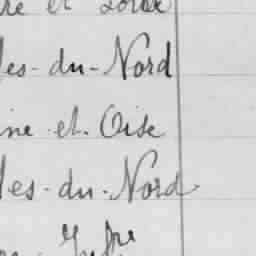 et Loire
es-du-Nord
ine-et-Oise
les-du-Nord